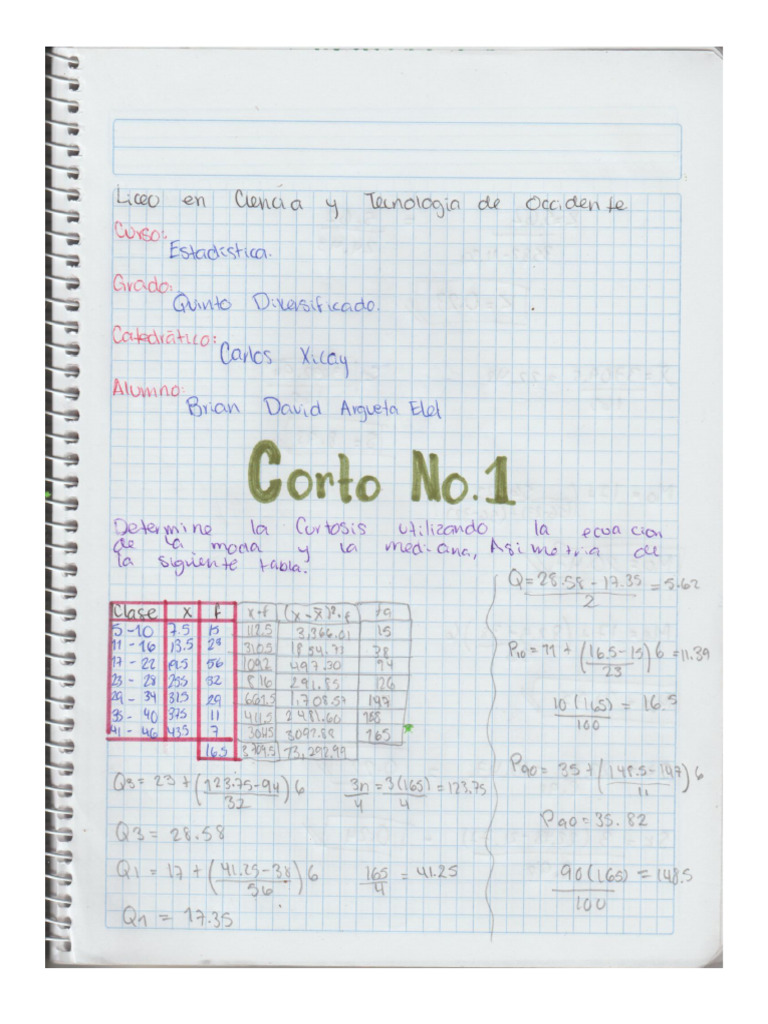 Liceo en Ciencia y Tecnologia de Occidente
Curso:
Estadística.
Grado:
Quinto Diversificado.
Catedrático:
Carlos Xicay
Alumno:
Brian David Argueta Elel
Corto No.1
Determine la Curtosis utilizando la ecuacion
de la moda y la mediana, Asimetria de
la siguiente tabla.
Clase x f x·f (x-x̄)²·f fa
5-10 7.5 15 112.5 3,366.01 15
11-16 13.5 23 310.5 1854.73 38
17-22 19.5 56 1092 497.30 94
23-28 25.5 32 816 291.85 126
29-34 31.5 29 1,708.57
35-40 37.5 11 2481.60
41-46 43.5 7 304.5 3092.88 165
165 3,709.5 13,292.99
Q3 = 23 + (123.75-94/32)6 3n/4 = 3(165)/4 = 123.75
Q3 = 28.58
Q1 = 17 + (41.25-38/56)6 165/4 = 41.25
Q1 = 17.35
Q = 28.58 - 17.35/2 = 5.62
P10 = 11 + (16.5-15/23)6 = 11.39
10(165)/100 = 16.5
P90 = 35 + (148.5-147/11)6
P90 = 35.82
90(165)/100 = 148.5